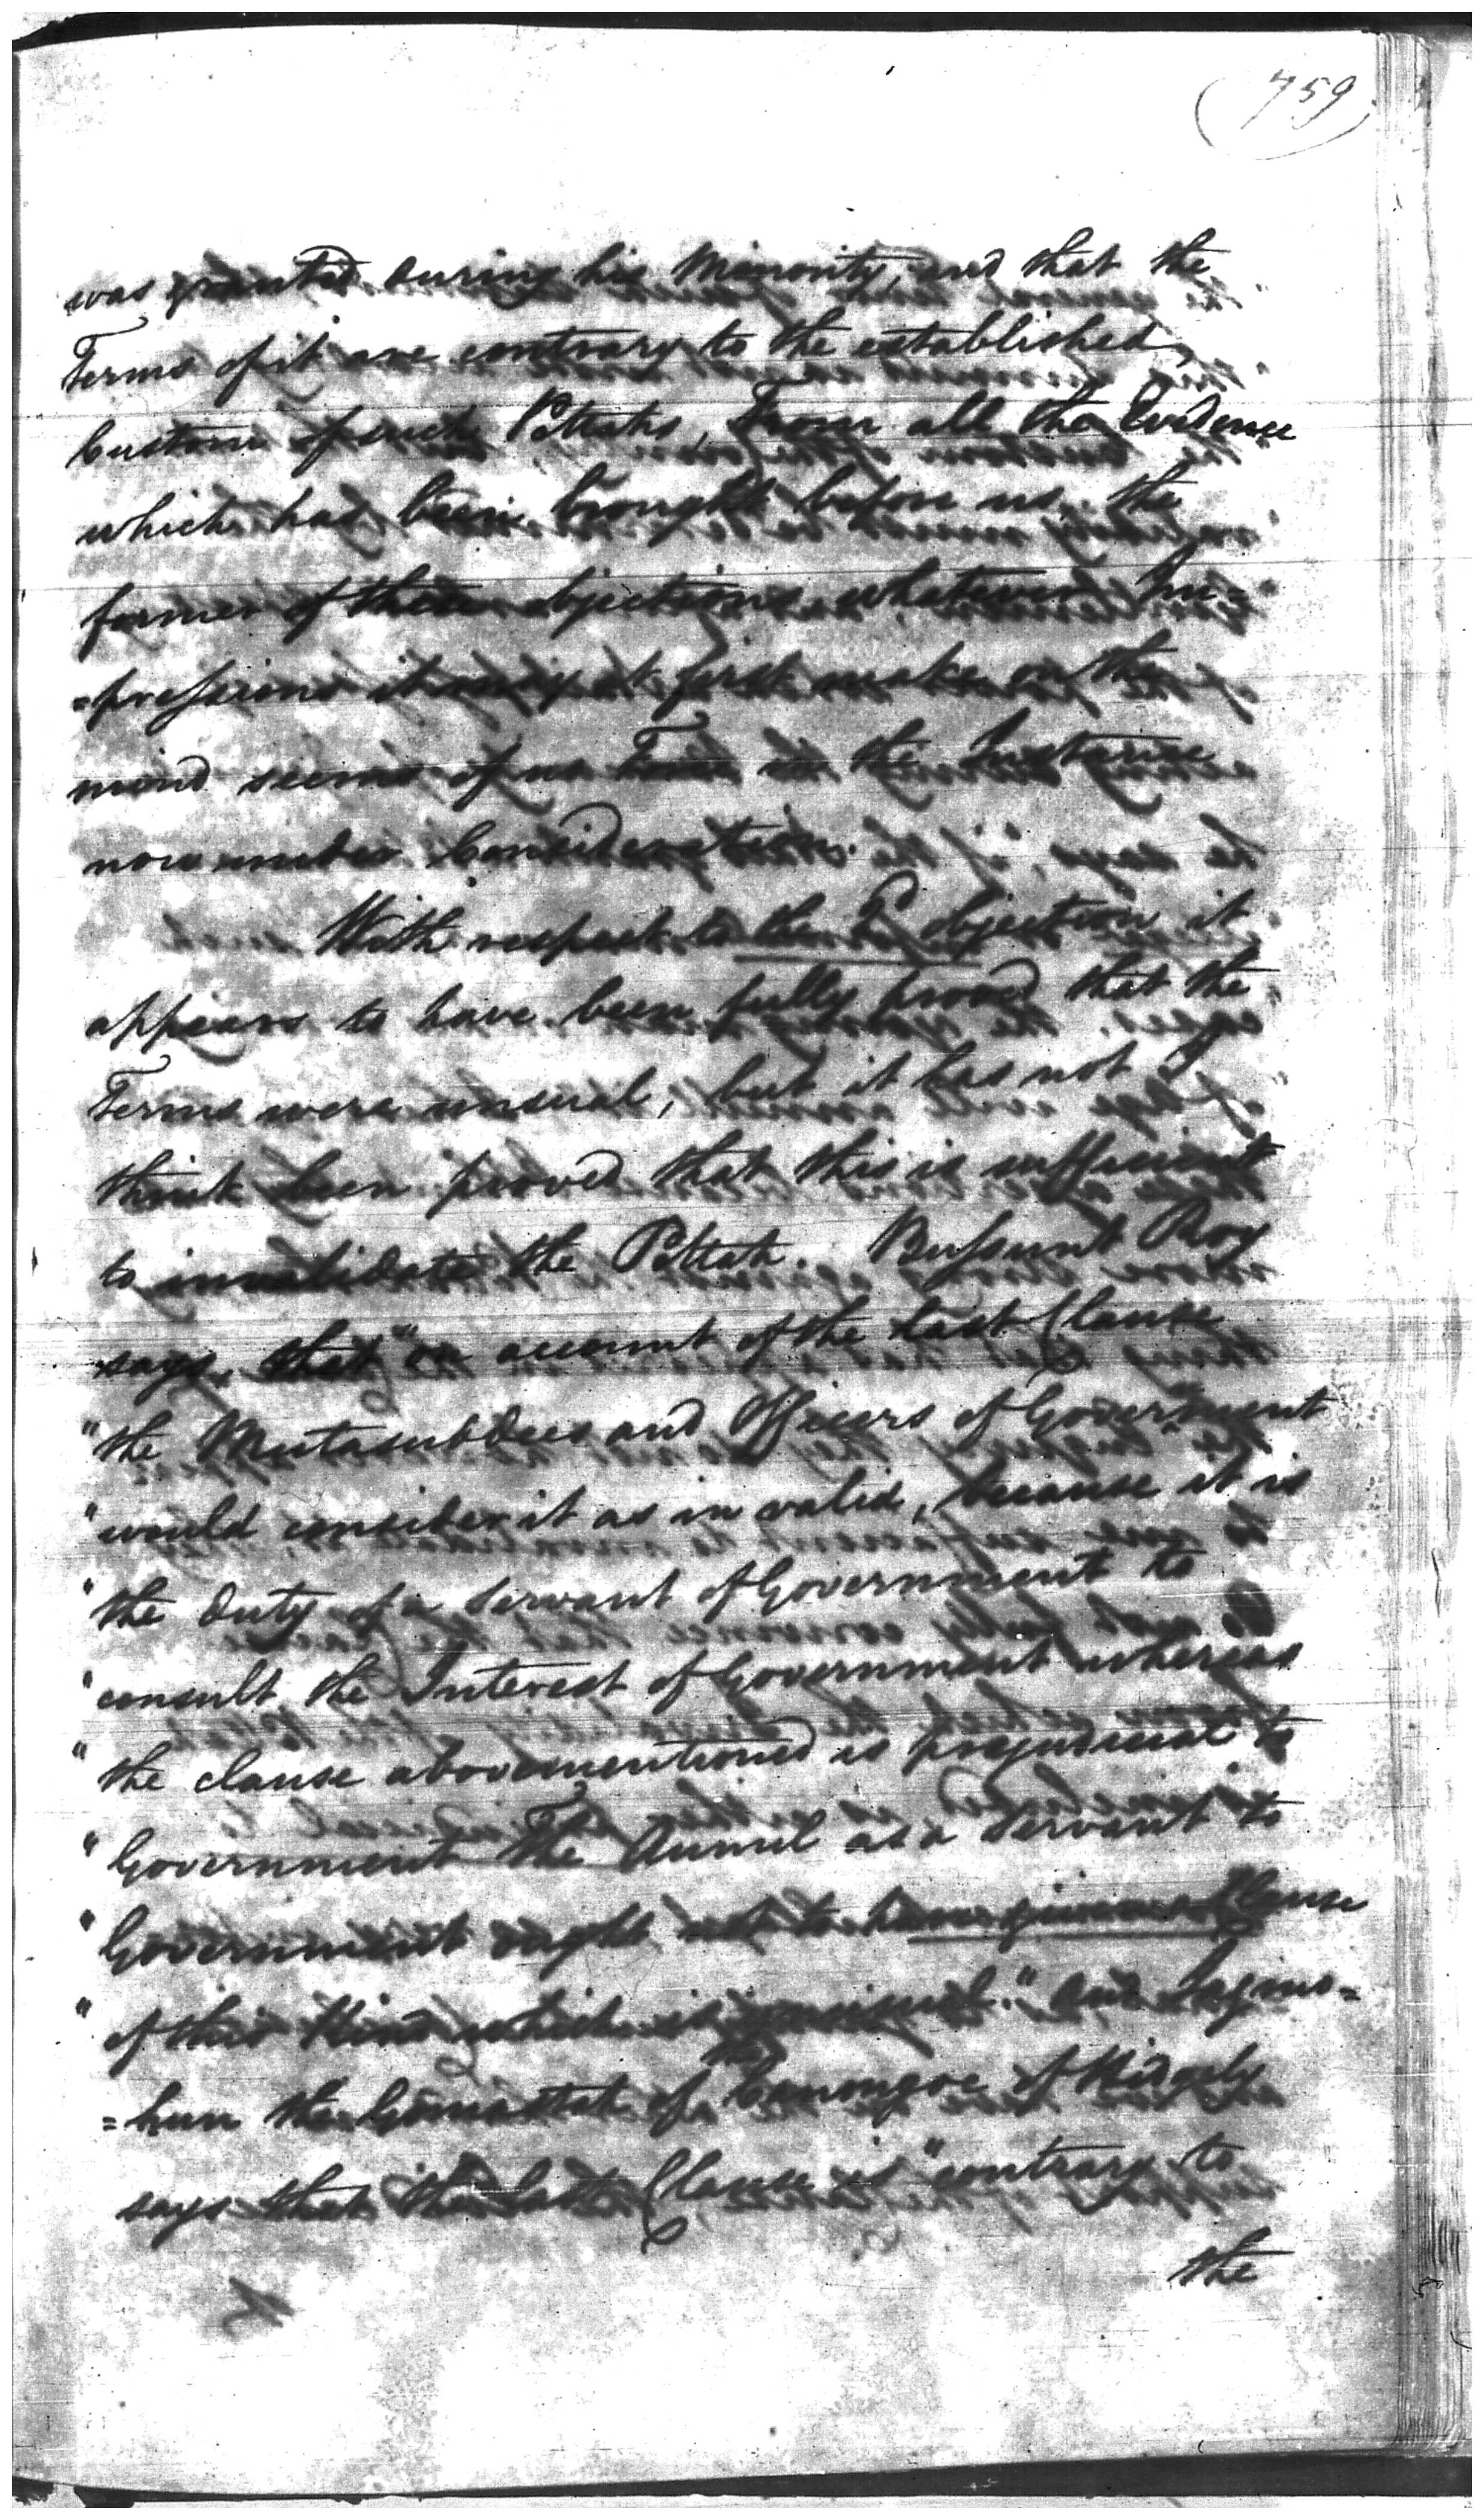 (759)
was granted during his Minority, and that the
Terms of it are contrary to the established
Custom of such Pottahs, From all the Evidence
which has been brought before us, the
former of these objections, whatever Im=
=pressions it may at first make on the
mind seems of no in the Instance
now under Consideration.
With respect to the 2d objection it
appears to have been fully proved that the
Terms were unusual, but it has not I
think been proved that this is sufficient
to invalidate the Pottah. Bussunt Roy
says, that "on account of the last Clause
"the Mutasubdees and Officers of Government
"would consider it as in valid, because it is
"the duty of a Servant of Government to
"consult the Interest of Government whereas
"the clause abovementioned is prejudicial to
"Government The Aumil as a Servant to
"Government ought not to have given a Clause
"of this Kind which is unusual." and
=hun the Gomastah of the Canongoe of Hidgely
says that the last Clause is "contrary to
the